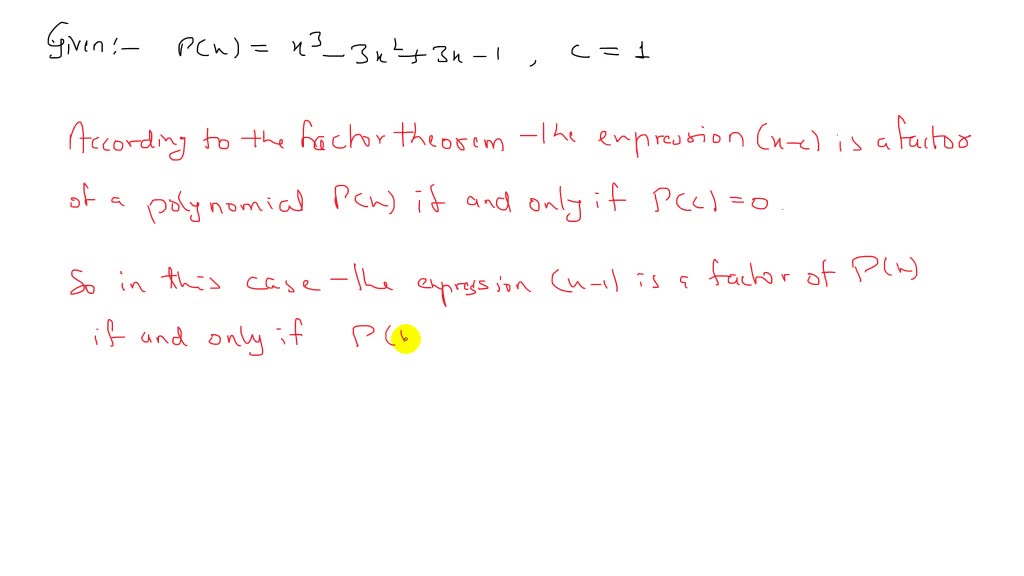 Given:- P(x) = x³ - 3x² + 3x - 1 , c = 1
According to the factor theorem the expression (x-c) is a factor
of a polynomial P(x) if and only if P(c) = 0.
So in this case the expression (x-1) is a factor of P(x)
if and only if P(